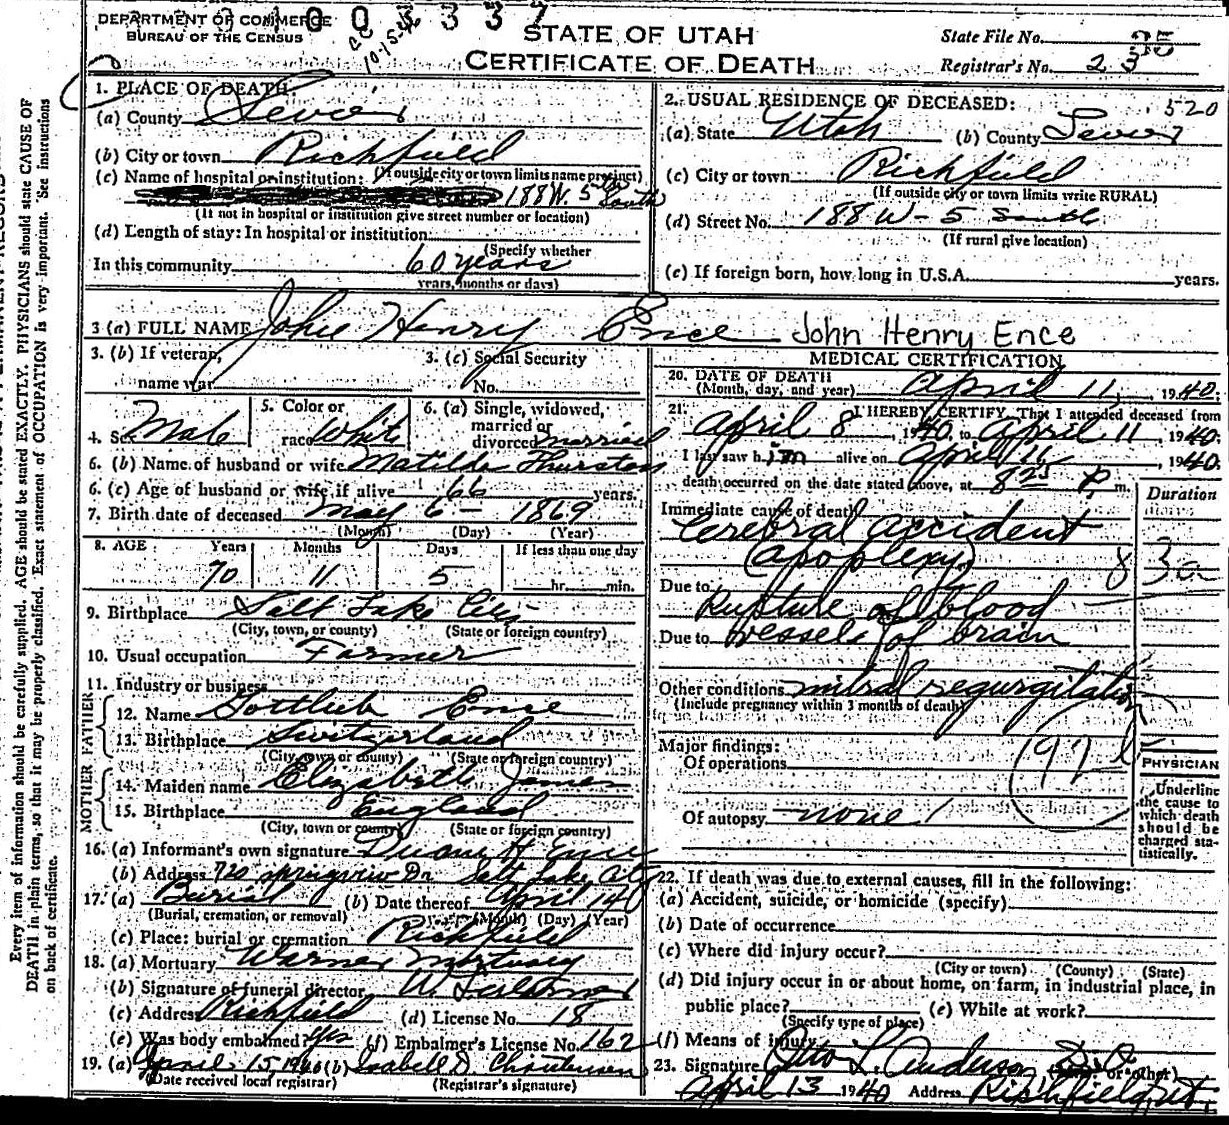 DEPARTMENT OF COMMERCE
BUREAU OF THE CENSUS
STATE OF UTAH
CERTIFICATE OF DEATH
State File No. 35
Registrar's No. 23
1. PLACE OF DEATH:
(a) County Sevier
(b) City or town Richfield
(If outside city or town limits name precinct)
(c) Name of hospital or institution:
188 W. 5th South
(If not in hospital or institution give street number or location)
(d) Length of stay: In hospital or institution
(Specify whether
In this community 60 years
years, months or days)
2. USUAL RESIDENCE OF DECEASED: 520
(a) State Utah (b) County Sevier
(c) City or town Richfield
(If outside city or town limits write RURAL)
(d) Street No. 188 W - 5 South
(If rural give location)
(e) If foreign born, how long in U.S.A. years.
3 (a) FULL NAME John Henry Ence John Henry Ence
3. (b) If veteran,
name war
3. (c) Social Security
No.
4. Sex Male
5. Color or
race White
6. (a) Single, widowed,
married or
divorced married
6. (b) Name of husband or wife Matilda Thurston
6. (c) Age of husband or wife if alive 66 years.
7. Birth date of deceased May 6 - 1869
(Month) (Day) (Year)
8. AGE Years Months Days If less than one day
70 11 5 hr. min.
9. Birthplace Salt Lake City
(City, town, or county) (State or foreign country)
10. Usual occupation Farmer
11. Industry or business
FATHER
12. Name Gottlieb Ence
13. Birthplace Switzerland
(City, town or county) (State or foreign country)
MOTHER
14. Maiden name Elizabeth James
15. Birthplace England
(City, town or county) (State or foreign country)
16. (a) Informant's own signature Duane H Ence
(b) Address 720 Springview Dr Salt Lake
17. (a) Burial (b) Date thereof April 14 40
(Burial, cremation, or removal) (Month) (Day) (Year)
(c) Place: burial or cremation Richfield
18. (a) Mortuary Warner Mortuary
(b) Signature of funeral director
(c) Address Richfield (d) License No. 18
(e) Was body embalmed? yes (f) Embalmer's License No. 162
19. (a) April 15, 1940 (b) Isabell D. Christensen
(Date received local registrar) (Registrar's signature)
MEDICAL CERTIFICATION
20. DATE OF DEATH
(Month, day, and year) April 11, 1940.
21. I HEREBY CERTIFY, That I attended deceased from
April 8, 1940, to April 11, 1940.
I last saw him alive on April 1940.
death occurred on the date stated above, at 8 25 P. m.
Duration
Immediate cause of death
Cerebral accident
(apoplexy)
Due to
Rupture of blood
Due to vessels of brain
Other conditions mitral regurgitation
(Include pregnancy within 3 months of death)
Major findings:
Of operations
Of autopsy none
PHYSICIAN
Underline
the cause to
which death
should be
charged sta-
tistically.
22. If death was due to external causes, fill in the following:
(a) Accident, suicide, or homicide (specify)
(b) Date of occurrence
(c) Where did injury occur?
(City or town) (County) (State)
(d) Did injury occur in or about home, on farm, in industrial place, in
public place? (e) While at work?
(Specify type of place)
(f) Means of injury
23. Signature Otto L. Anderson D.O.
or other)
April 13 1940 Address Richfield, Ut.
Every item of information should be carefully supplied. AGE should be stated EXACTLY. PHYSICIANS should state CAUSE OF
DEATH in plain terms, so that it may be properly classified. Exact statement of OCCUPATION is very important. See instructions
on back of certificate.